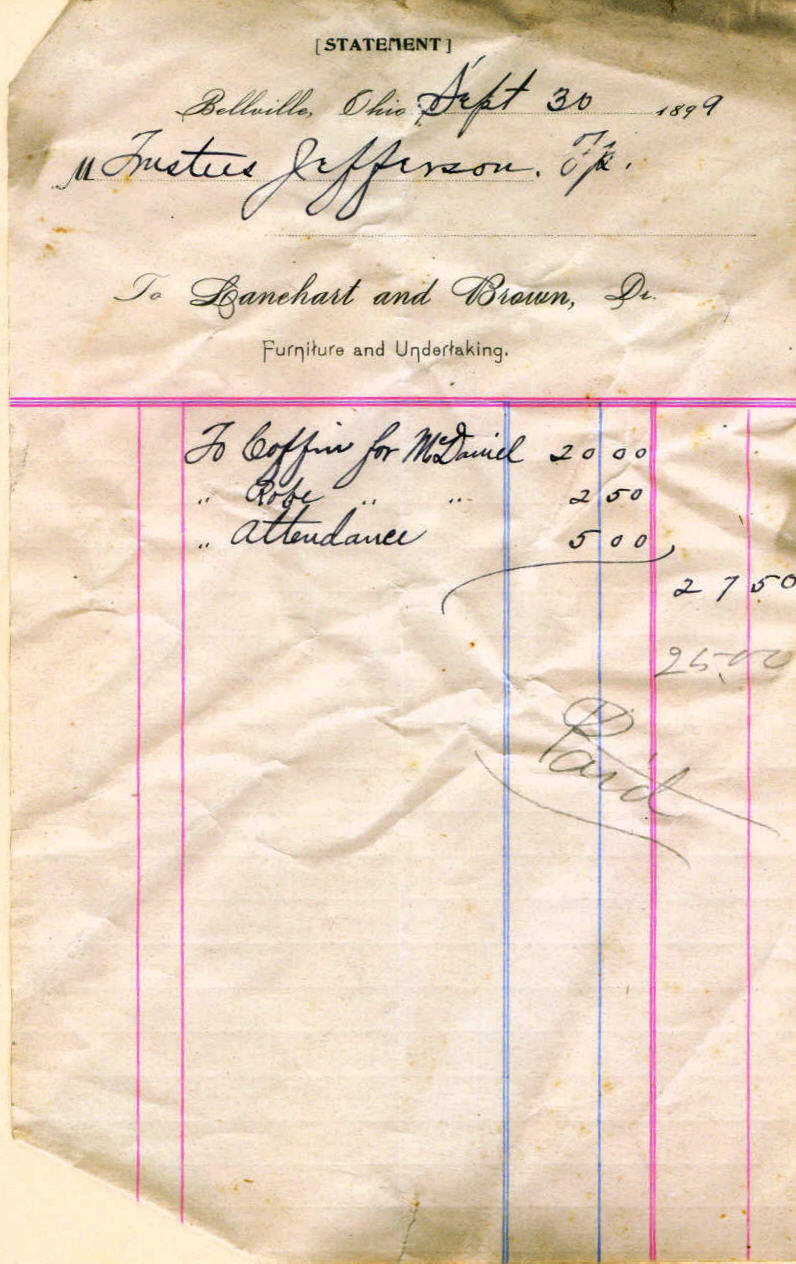 [STATEMENT]
Bellville, Ohio Sept 30 1899
M Trustees Jefferson. Tp.
To Lanehart and Brown, Dr.
Furniture and Undertaking.
To Coffin for McDaniel 20 00
" Robe " " 2 50
" Attendance 5 00
27 50
25.00
Paid